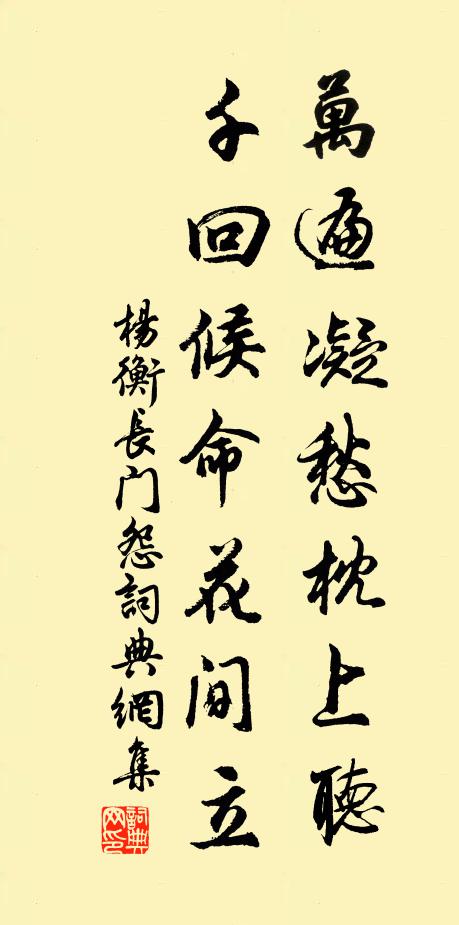 萬遍凝愁枕上聽
千回候命花間立
楊衡長門怨詞典網集
詞典網印